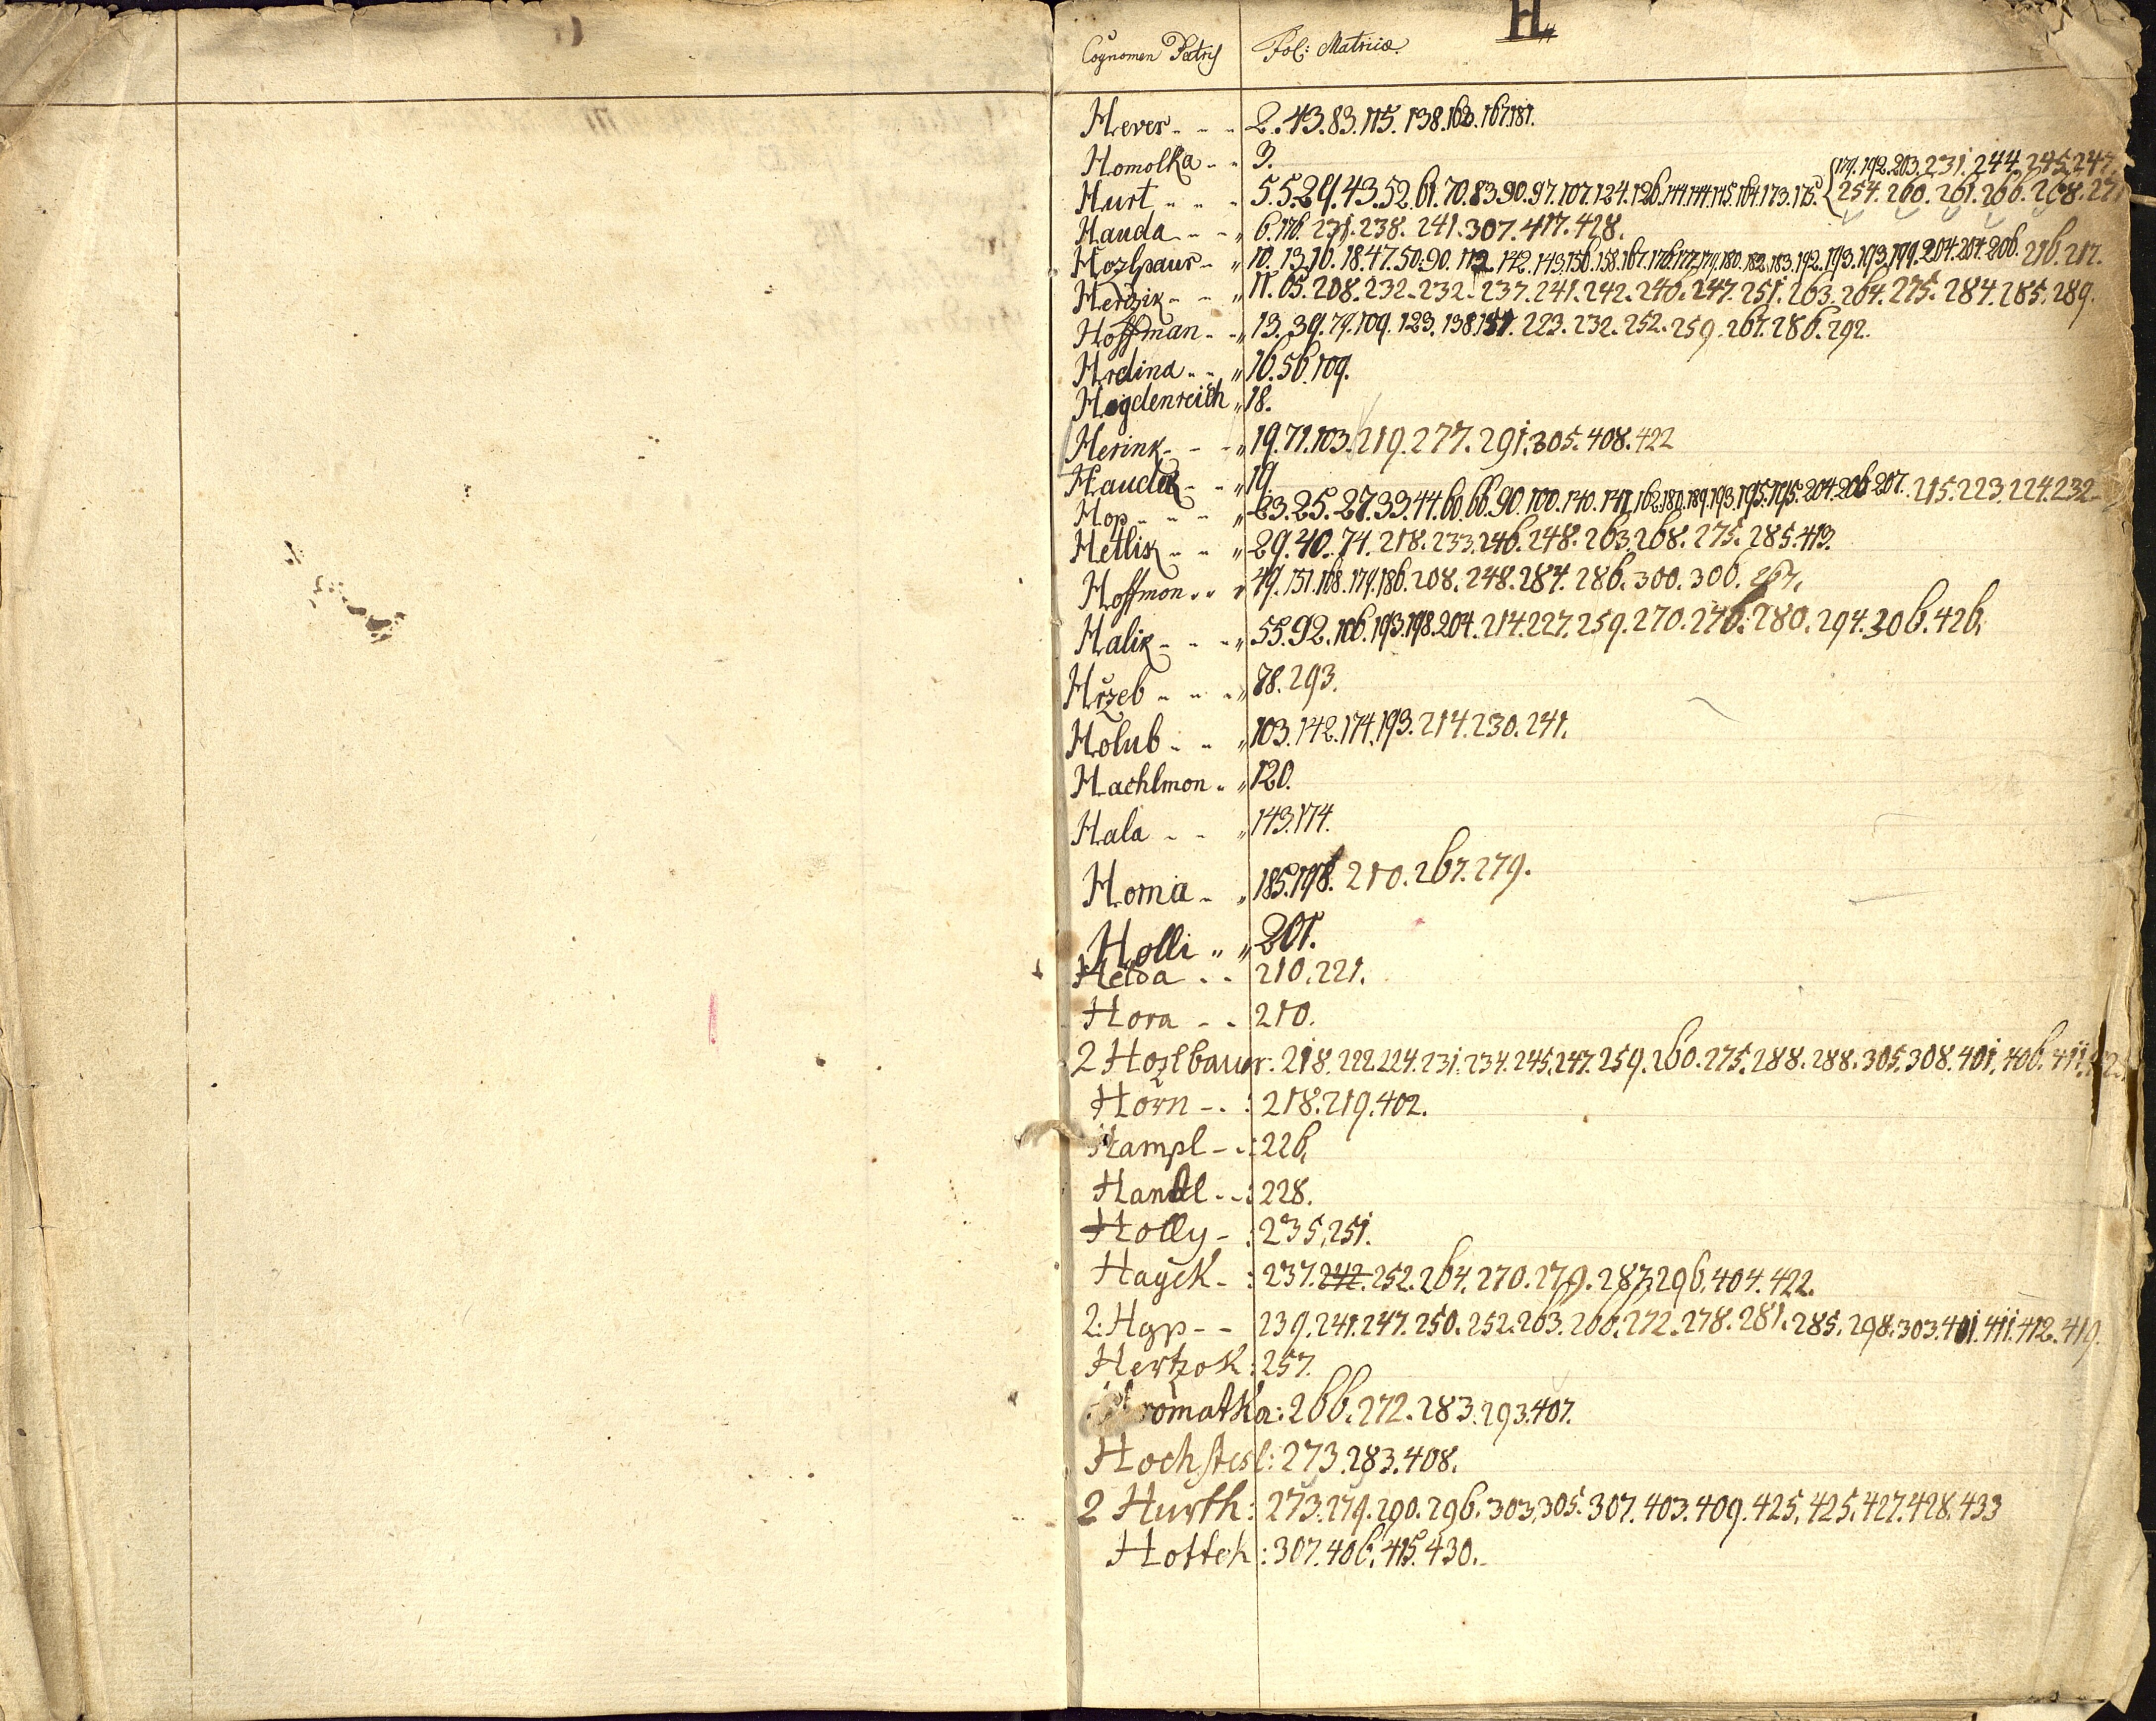 H„
Cognomen Patris Fol: Matricæ.
Hever - - - 2. 43. 83. 115. 138. 162. 167. 181.
Homolka - - 3.
179. 192. 203. 231. 244. 245. 247.
Hurt - - - 5. 5. 29. 43. 52. 61. 70. 83. 90. 97. 107. 124. 126. 144. 144. 145. 164. 173. 175. { 254. 260. 261. 266. 268. 271
Hauda - - „ 6. 176. 238. 241. 307. 417. 428.
Hozlpaur - „ 10. 13. 16. 18. 47. 50. 90. 112. 142. 143. 156. 158. 167. 176. 177. 179. 180. 182. 183. 192. 193. 193. 199. 204. 204. 206. 216. 217.
Herdzik - - „ 11. 65. 208. 232. 232. 237. 241. 242. 240. 247. 251. 263. 264. 275. 284. 285. 289.
Hoffman - - „ 13. 39. 79. 109. 123. 138. 151. 223. 232. 252. 259. 267. 286. 292.
Hrdina - - „ 16. 56. 109.
Hegdenreich „ 18.
Herink - - - „ 19. 71. 103. 219. 277. 291. 305. 408. 422
Haudek - - „ 19.
Hop - - - „ 23. 25. 27. 33. 44. 60. 66. 90. 100. 140. 141. 162. 180. 189. 193. 195. 195. 204. 206. 207. 215. 223. 224. 232
Hetlik - - „ 29. 40. 74. 218. 233. 246. 248. 263. 268. 275. 285. 413.
Hoffmon - - „ 49. 151. 168. 179. 186. 208. 248. 284. 286. 300. 306. 267.
Halik - - - „ 55. 92. 106. 193. 198. 204. 214. 227. 259. 270. 276. 280. 294. 306. 426.
Hržeb - - - „ 88. 293.
Holub - - „ 103. 142. 174. 193. 214. 230. 241.
Hachlmon - „ 120.
Hala - - „ 143. 174.
Homa - „ 185. 198. 210. 267. 279.
Holli „ „ 201.
Helda - - 210. 221.
Hora - - 210.
2 Hozlbaur: 218. 222. 224. 231. 234. 245. 247. 259. 260. 275. 288. 288. 305. 308. 401. 406. 411.
Horn - - : 218. 219. 402.
Hampl - - : 226.
Handl - - : 228.
Holly - : 235. 251.
Hayek - : 237. 242. 252. 264. 270. 279. 287. 296. 404. 422.
2. Hop - - 239. 241. 247. 250. 252. 263. 266. 272. 278. 281. 285. 298. 303. 401. 411. 412. 419.
Hertzok : 257.
Hromatka : 266. 272. 283. 293. 407.
Hochstesl : 273. 283. 408.
2 Hurth : 273. 279. 290. 296. 303. 305. 307. 403. 409. 425. 425. 427. 428. 433
Hottek : 307. 406. 415. 430.